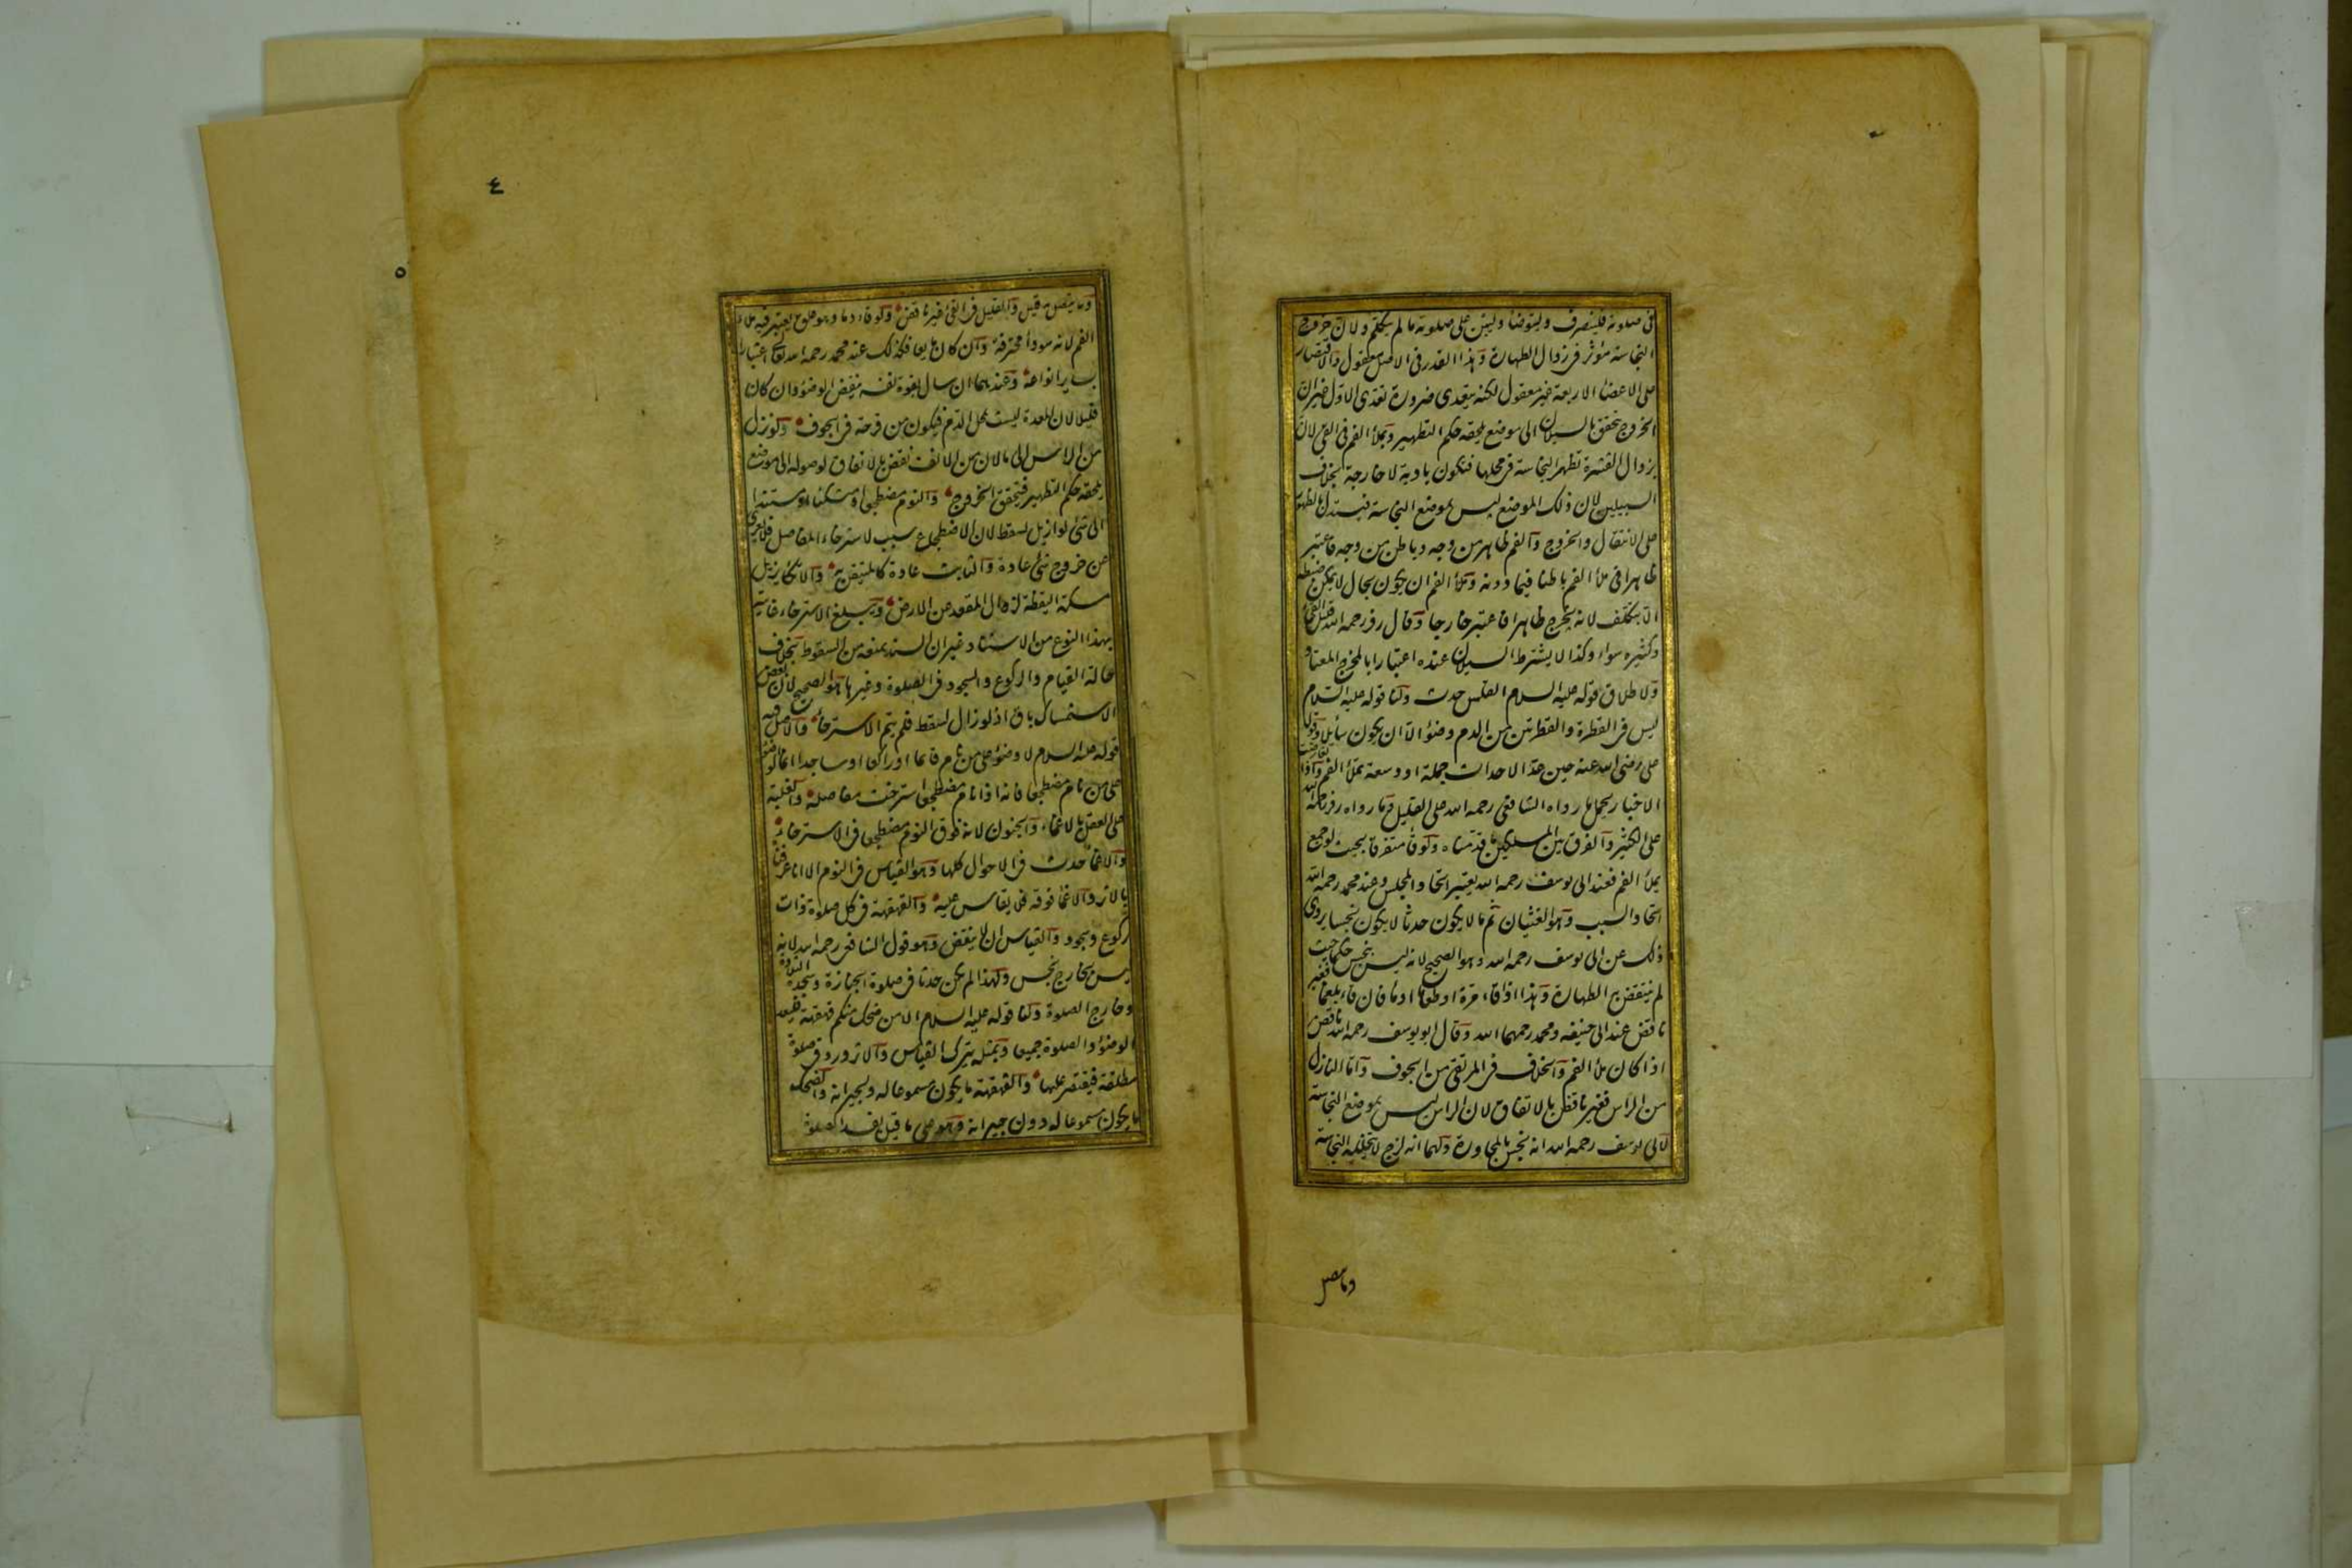 في صلوته فلينصرف وليتوضأ وليبن على صلوته ما لم يتكلم ولان خروج
النجاسة مؤثر في زوال الطهارة وهذا القدر في الاصل معقول والاقتصار
على الاعضاء الاربعة غير معقول لكنه يتعدى ضرورة تعدى الاول غير ان
الخروج يتحقق بالسيلان الى موضع يلحقه حكم التطهير وبملأ الفم في القئ لان
بزوال القشرة تظهر النجاسة في محلها فتكون بادية لا خارجة بخلاف
السبيلين لان ذلك الموضع ليس بموضع النجاسة فيستدل بالظهور
على الانتقال والخروج والفم ظاهر من وجه وباطن من وجه فاعتبر
ظاهرا في ملأ الفم باطنا فيما دونه وملأ الفم ان يكون بحال لا يمكن ضبطه
الا بتكلف لانه يخرج ظاهرا فاعتبر خارجا وقال زفر رحمه الله قليل القئ
وكثيره سواء وكذا لا يشترط السيلان عنده اعتبارا بالمخرج المعتاد
ولاطلاق قوله عليه السلام القلس حدث ولنا قوله عليه السلام
ليس في القطرة والقطرتين من الدم وضوء الا ان يكون سائلا وقول
على رضي الله عنه حين عد الاحداث جملة او دسعة تملأ الفم واذا تعارضت
الاخبار يحمل ما رواه الشافعي رحمه الله على القليل وما رواه زفر رحمه الله
على الكثير والفرق بين المسلكين ما قدمناه ولو قاء متفرقا بحيث لو جمع
يملأ الفم فعند ابي يوسف رحمه الله يعتبر اتحاد المجلس وعند محمد رحمه الله
اتحاد السبب وهو الغثيان ثم ما لا يكون حدثا لا يكون نجسا يروى
ذلك عن ابي يوسف رحمه الله وهو الصحيح لانه ليس بنجس حكما حيث
لم ينتقض به الطهارة وهذا اذا قاء مرة او طعاما او ماء فان قاء بلغما فغير
ناقض عند ابي حنيفة ومحمد رحمهما الله وقال ابو يوسف رحمه الله ناقض
اذا كان ملأ الفم والخلاف في المرتقى من الجوف واما النازل
من الراس فغير ناقض بالاتفاق لان الراس ليس بموضع النجاسة
لابي يوسف رحمه الله انه نجس بالمجاورة ولهما انه لزج لا يتخلله النجاسة
وما يتصل
٤
وما يتصل به قليل والقليل في القئ غير ناقض ولو قاء دما وهو علق يعتبر فيه ملأ
الفم لانه سوداء محترقة وان كان مايعا فكذلك عند محمد رحمه الله تعالى اعتبارا
بسائر انواعه وعندهما ان سال بقوة نفسه ينقض الوضوء وان كان
قليلا لان المعدة ليست بمحل الدم فيكون من قرحة في الجوف ولو نزل
من الراس الى ما لان من الانف نقض بالاتفاق لوصوله الى موضع
يلحقه حكم التطهير فيتحقق الخروج والنوم مضطجعا او متكئا او مستندا
الى شئ لو ازيل لسقط لان الاضطجاع سبب لاسترخاء المفاصل فلا يعرى
عن خروج شئ عادة والثابت عادة كالمتيقن به والاتكاء يزيل
مسكة اليقظة لزوال المقعد عن الارض ويبلغ الاسترخاء غايته
بهذا النوع من الاستناد غير ان السند يمنعه من السقوط بخلاف
حالة القيام والركوع والسجود في الصلوة وغيرها هو الصحيح لان بعض
الاستمساك باق اذ لو زال لسقط فلم يتم الاسترخاء والاصل فيه
قوله عليه السلام لا وضوء على من نام قائما او راكعا او ساجدا انما الوضوء
على من نام مضطجعا فانه اذا نام مضطجعا استرخت مفاصله والغلبة
على العقل بالاغماء والجنون لانه فوق النوم مضطجعا في الاسترخاء
والاغماء حدث في الاحوال كلها وهو القياس في النوم الا انا عرفناه
بالاثر والاغماء فوقه فلا يقاس عليه والقهقهة في كل صلوة ذات
ركوع وسجود والقياس ان لا ينقض وهو قول الشافعي رحمه الله لانه
ليس بخارج نجس ولهذا لم يكن حدثا في صلوة الجنازة وسجدة التلاوة
وخارج الصلوة ولنا قوله عليه السلام الا من ضحك منكم قهقهة فليعد
الوضوء والصلوة جميعا وبمثله يترك القياس والاثر ورد في صلوة
مطلقة فيقتصر عليها والقهقهة ما يكون مسموعا له ولجيرانه والضحك
ما يكون مسموعا له دون جيرانه وهو على ما قيل يفسد الصلوة
٥